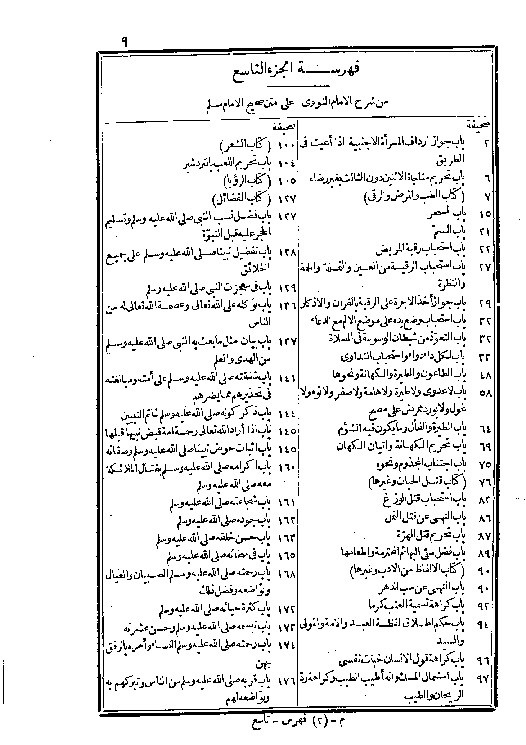 ٩
فهرسة الجزء التاسع
من شرح الامام النووى على متن صحيح الامام مسلم
صحيفة
٢ باب جواز ارداف المرأة الاجنبية اذا أعيت فى
الطريق
٦ باب تحريم مناجاة الاثنين دون الثالث بغير رضاه
٧ (كتاب الطب والمرض والرقى)
١٥ باب السحر
٢١ باب السم
٢٢ باب استحباب رقية المريض
٢٧ باب استحباب الرقية من العين والنملة والحمة
والنظرة
٢٩ باب جواز أخذ الاجرة على الرقية بالقرآن والاذكار
٣٢ باب استحباب وضع يده على موضع الالم مع الدعاء
٣٢ باب التعوذ من شيطان الوسوسة فى الصلاة
٣٣ باب لكل داء دواء واستحباب التداوى
٤٨ باب الطاعون والطيرة والكهانة ونحوها
٥٨ باب لاعدوى ولا طيرة ولا هامة ولا صفر ولا نوء ولا
غول ولا يورد ممرض على مصح
٦٤ باب الطيرة والفأل وما يكون فيه الشؤم
٦٩ باب تحريم الكهانة واتيان الكهان
٧٥ باب اجتناب المجذوم ونحوه
٧٦ (كتاب قتل الحيات وغيرها)
٨٢ باب استحباب قتل الوزغ
٨٦ باب النهى عن قتل النمل
٨٧ باب تحريم قتل الهرة
٨٩ باب فضل سقى البهائم المحترمة واطعامها
٩٠ (كتاب الالفاظ من الادب وغيرها)
٩٠ باب النهى عن سب الدهر
٩٢ باب كراهة تسمية العنب كرما
٩٤ باب حكم اطلاق لفظة العبد والامة والمولى
والسيد
٩٦ باب كراهة قول الانسان خبثت نفسى
٩٧ باب استعمال المسك وانه أطيب الطيب وكراهة رد
الريحان والطيب
صحيفة
١٠٠ (كتاب الشعر)
١٠٤ باب تحريم اللعب بالنردشير
١٠٥ (كتاب الرؤيا)
١٢٧ (كتاب الفضائل)
١٢٧ باب فضل نسب النبى صلى الله عليه وسلم وتسليم
الحجر عليه قبل النبوة
١٢٨ باب تفضيل نبينا صلى الله عليه وسلم على جميع
الخلائق
١٢٩ باب فى معجزات النبى صلى الله عليه وسلم
١٣٦ باب توكله على الله تعالى وعصمة الله تعالى له من
الناس
١٣٧ باب بيان مثل ما بعث به النبى صلى الله عليه وسلم
من الهدى والعلم
١٤١ باب شفقته صلى الله عليه وسلم على أمته ومبالغته
فى تحذيرهم مما يضرهم
١٤٤ باب ذكر كونه صلى الله عليه وسلم خاتم النبيين
١٤٥ باب اذا أراد الله تعالى رحمة أمة قبض نبيها قبلها
١٤٥ باب اثبات حوض نبينا صلى الله عليه وسلم وصفاته
١٦٠ باب اكرامه صلى الله عليه وسلم بقتال الملائكة
معه صلى الله عليه وسلم
١٦١ باب شجاعته صلى الله عليه وسلم
١٦٢ باب جوده صلى الله عليه وسلم
١٦٣ باب حسن خلقه صلى الله عليه وسلم
١٦٥ باب فى سخائه صلى الله عليه وسلم
١٦٨ باب رحمته صلى الله عليه وسلم الصبيان والعيال
وتواضعه وفضل ذلك
١٧٢ باب كثرة حيائه صلى الله عليه وسلم
١٧٣ باب تبسمه صلى الله عليه وسلم وحسن عشرته
١٧٤ باب رحمته صلى الله عليه وسلم النساء وأمره بالرفق
بهن
١٧٦ باب قربه صلى الله عليه وسلم من الناس وتبركهم به
وتواضعه لهم
م - (٢) فهرس - تاسع